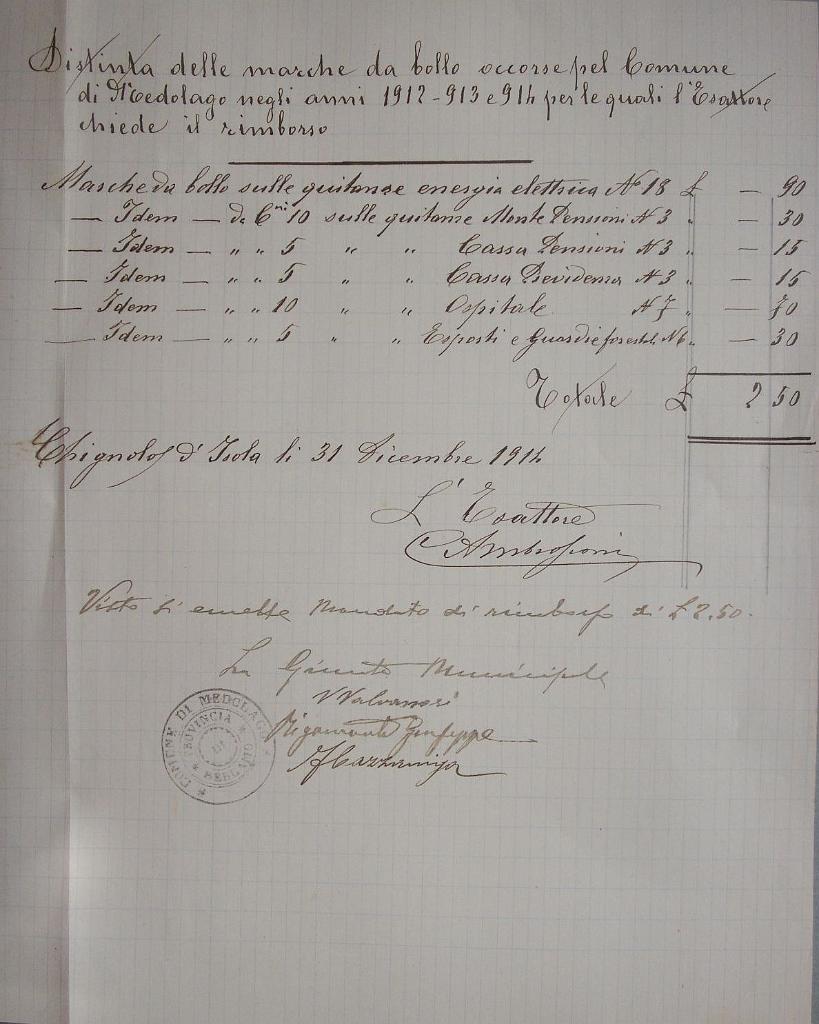 Distinta delle marche da bollo occorse pel Comune
di Medolago negli anni 1912-913 e 914 per le quali l'Esattore
chiede il rimborso
Marche da bollo sulle quitanze energia elettrica N° 18 £ — 90
— Idem — da C.mi 10 sulle quitanze Monte Pensioni N 3 " — 30
— Idem — " " 5 " " Cassa Pensioni N 3 " — 15
— Idem — " " 5 " " Cassa Previdenza N 3 " — 15
— Idem — " " 10 " " Ospitale N 7 " — 70
— Idem — " " 5 " " Esposti e Guardie forestali N 6 " — 30
Totale £ 2 50
Chignolo d'Isola li 31 Dicembre 1914
L'Esattore
Ambrosioni
Visto si emette Mandato di rimborso di £ 2.50.
La Giunta Municipale
Giuseppe
COMUNE DI MEDOLAGO
PROVINCIA DI BERGAMO